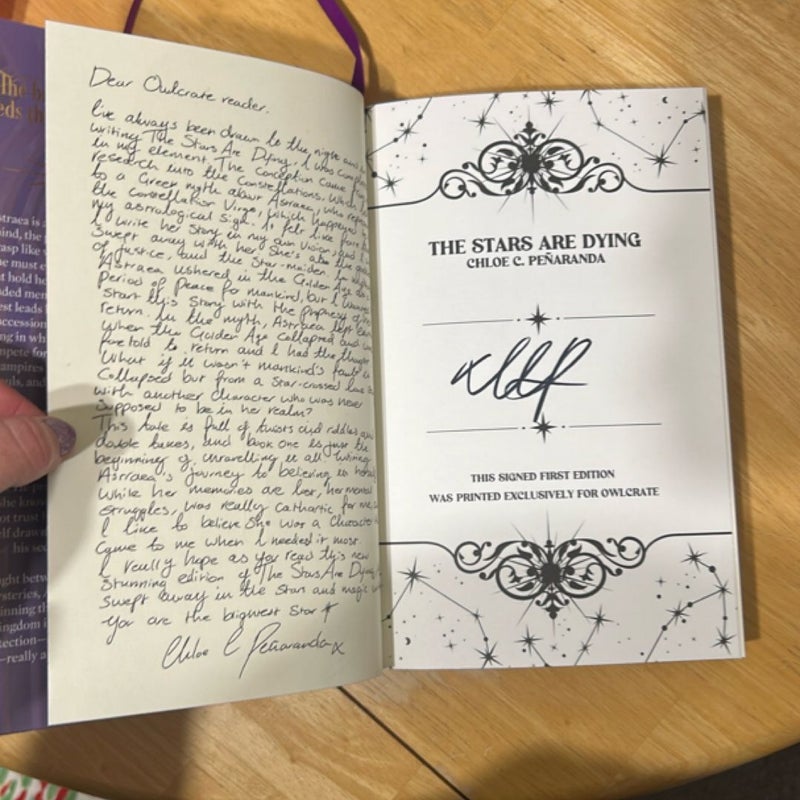 The b
eds th
straea is
ind, the
asp like
e must e
t hold he
ded men
est leads
ccession
ng in wh
mpete for
ampires
uls, and
she know
ot trust
elf draw
his sec
ght betw
ysteries,
inning th
ingdom i
tection—
—really a
Dear Owlcrate reader,
I've always been drawn to the night and
writing The Stars Are Dying, I was comp
in my element. The conception came
research into the constellations, which
to a Greek myth about Astraea, who repr
the constellation Virgo, which happened
my astrological sign. It felt like fate
I write her story in my own vision, and I
swept away with her. She's also the
of justice, and the Star-maiden. In
Astraea ushered in the Golden Age as
period of peace for mankind, but I wanted
start this story with the prophecy of her
return. In the myth, Astraea left
when the Golden Age collapsed and was
foretold to return and I had the thought
What if it wasn't mankind's fault it
collapsed but from a star-crossed love
with another character who was never
supposed to be in her realm?
This tale is full of twists and riddles and
double faxes, and book one is just the
beginning of unravelling it all. Writing
Astraea's journey to believing in herself
while her memories are lost, her mental
struggles, was really cathartic for me,
I like to believe she was a character
came to me when I needed it most.
I really hope as you read this new
stunning edition of The Stars Are Dying
swept away in the stars and magic
You are the brightest star
Chloe C Peñaranda x
THE STARS ARE DYING
CHLOE C. PEÑARANDA
THIS SIGNED FIRST EDITION
WAS PRINTED EXCLUSIVELY FOR OWLCRATE